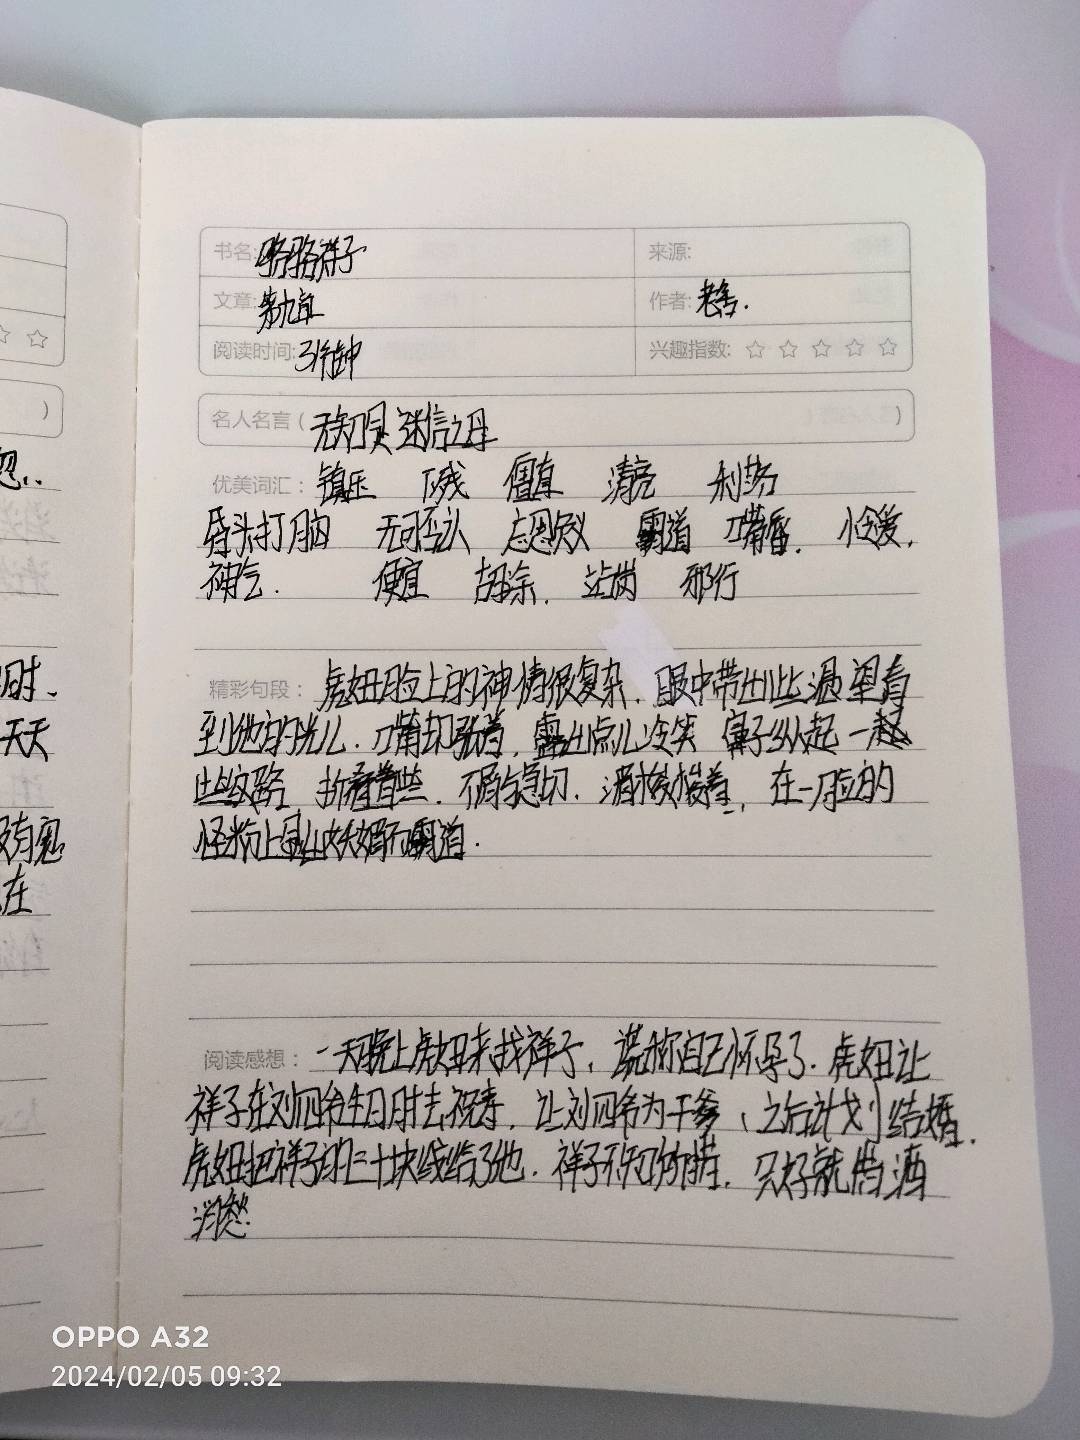 书名: 骆骆祥子
来源:
文章: 第九章
作者: 老舍.
阅读时间: 31分钟
兴趣指数: ☆ ☆ ☆ ☆ ☆
名人名言 ( 无知是迷信之母 )
优美词汇: 镇压 下贱 僵直 清亮 利落
昏头打脑 无可否认 忘恩负义 霸道 嘴唇. 怜爱.
神气. 便宜 胡涂. 站岗 邪行
精彩句段: 虎妞脸上的神情很复杂. 眼中带出些渴望看
到他的光儿. 嘴却张着, 露出点儿冷笑 鼻子纵起一起
些纹路 折着些. 不屑与急切. 眉棱棱着, 在一脸的
怪粉上显出妖媚而霸道.
阅读感想: 一天晚上虎妞来找祥子, 谎称自己怀孕了. 虎妞让
祥子在刘四爷生日时去祝寿, 让刘四爷为干爹, 之后计划结婚.
虎妞把祥子的三十块钱给了他. 祥子不知所措, 只好就借酒
消愁.
时、
天天
没有宽
在
OPPO A32
2024/02/05 09:32